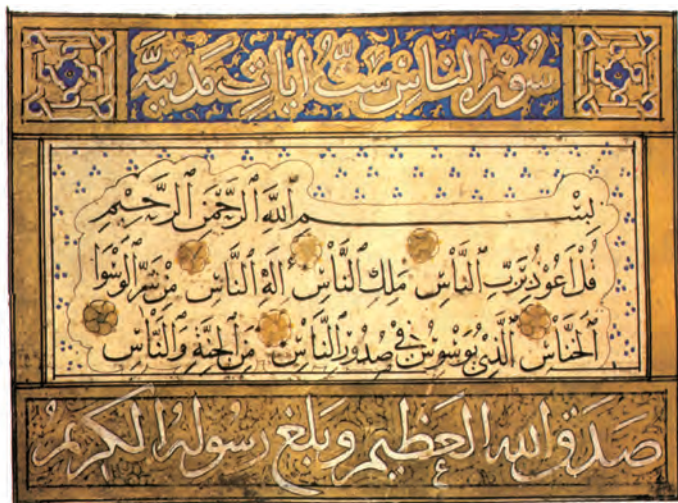 سورة الناس ست ايات مدنية
بِسْمِ ٱللَّهِ ٱلرَّحْمَنِ ٱلرَّحِيمِ
قُلْ أَعُوذُ بِرَبِّ ٱلنَّاسِ مَلِكِ ٱلنَّاسِ إِلَهِ ٱلنَّاسِ مِنْ شَرِّ ٱلْوَسْوَا
ٱلْخَنَّاسِ ٱلَّذِي يُوَسْوِسُ فِي صُدُورِ ٱلنَّاسِ مِنَ ٱلْجِنَّةِ وَٱلنَّاسِ
صَدَقَ الله العَظِيم وبلغ رسوله الكريم